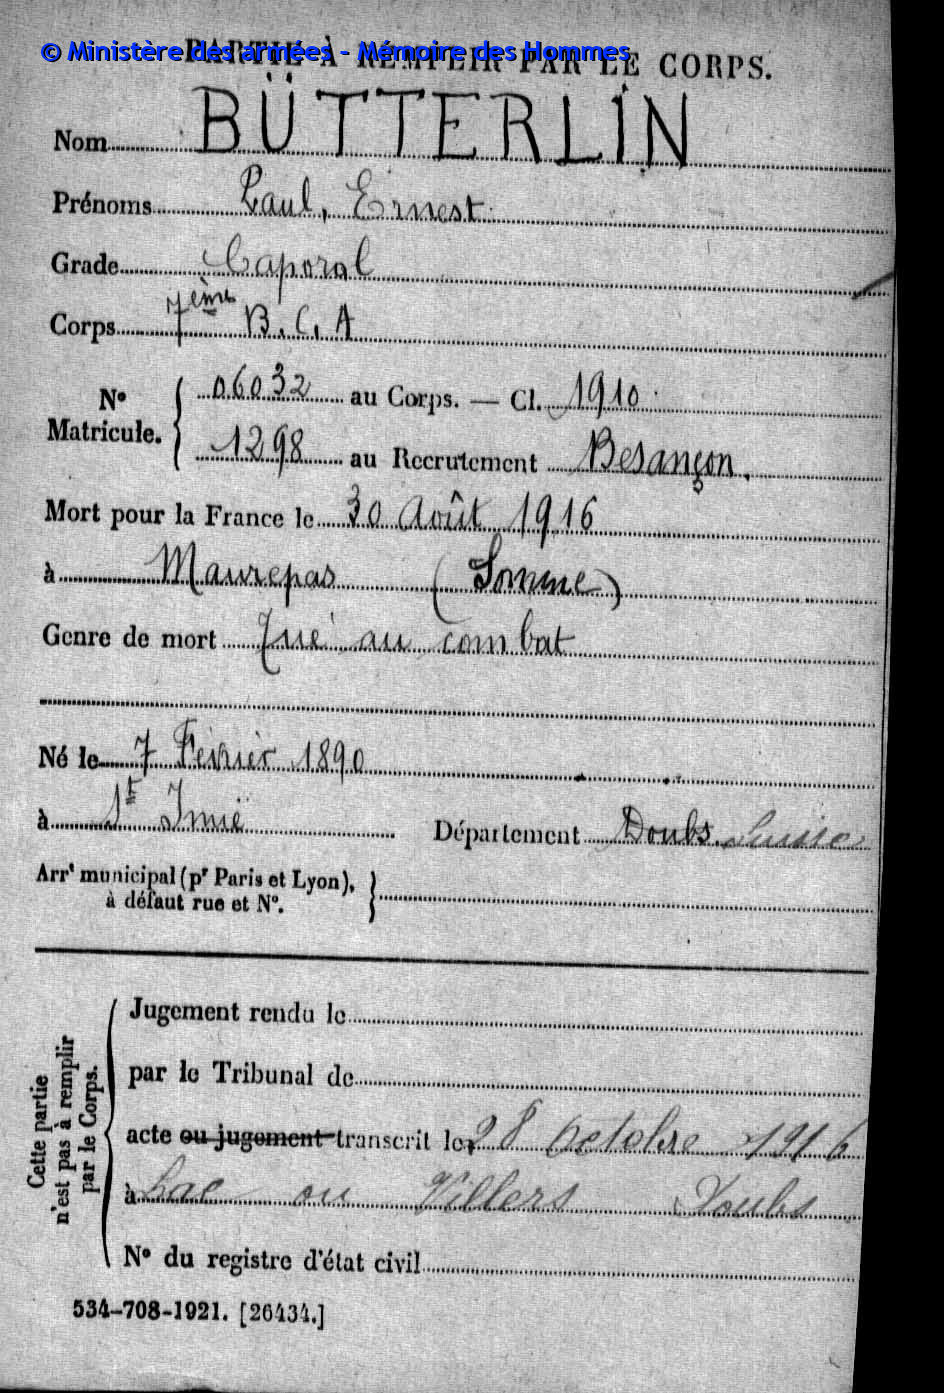 © Ministère des armées - Mémoire des Hommes
PARTIE À REMPLIR PAR LE CORPS.
Nom BÜTTERLIN
Prénoms Paul, Ernest
Grade Caporal
Corps 7ème B.C.A
N° Matricule. 06032 au Corps. — Cl. 1910
1298 au Recrutement Besançon.
Mort pour la France le 30 Août 1916
à Maurepas (Somme)
Genre de mort Tué au combat
Né le 7 Février 1890
à St Imié Département Doubs. Suisse
Arrt municipal (pr Paris et Lyon),
à défaut rue et N°.
Cette partie n'est pas à remplir par le Corps.
Jugement rendu le
par le Tribunal de
acte ou jugement transcrit le 28 octobre 1916
à Lac ou Villers Doubs
N° du registre d'état civil
534-708-1921. [26434.]